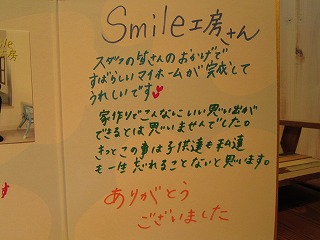 Smile工房さん
スタッフの皆さんのおかげで
すばらしいマイホームが完成して
うれしいです
家作りでこんないい思い出が
できるとは思いませんでした。
きっとこの事は子供達も私達
も一生忘れることないと思います。
ありがとう
ございました
ile
房